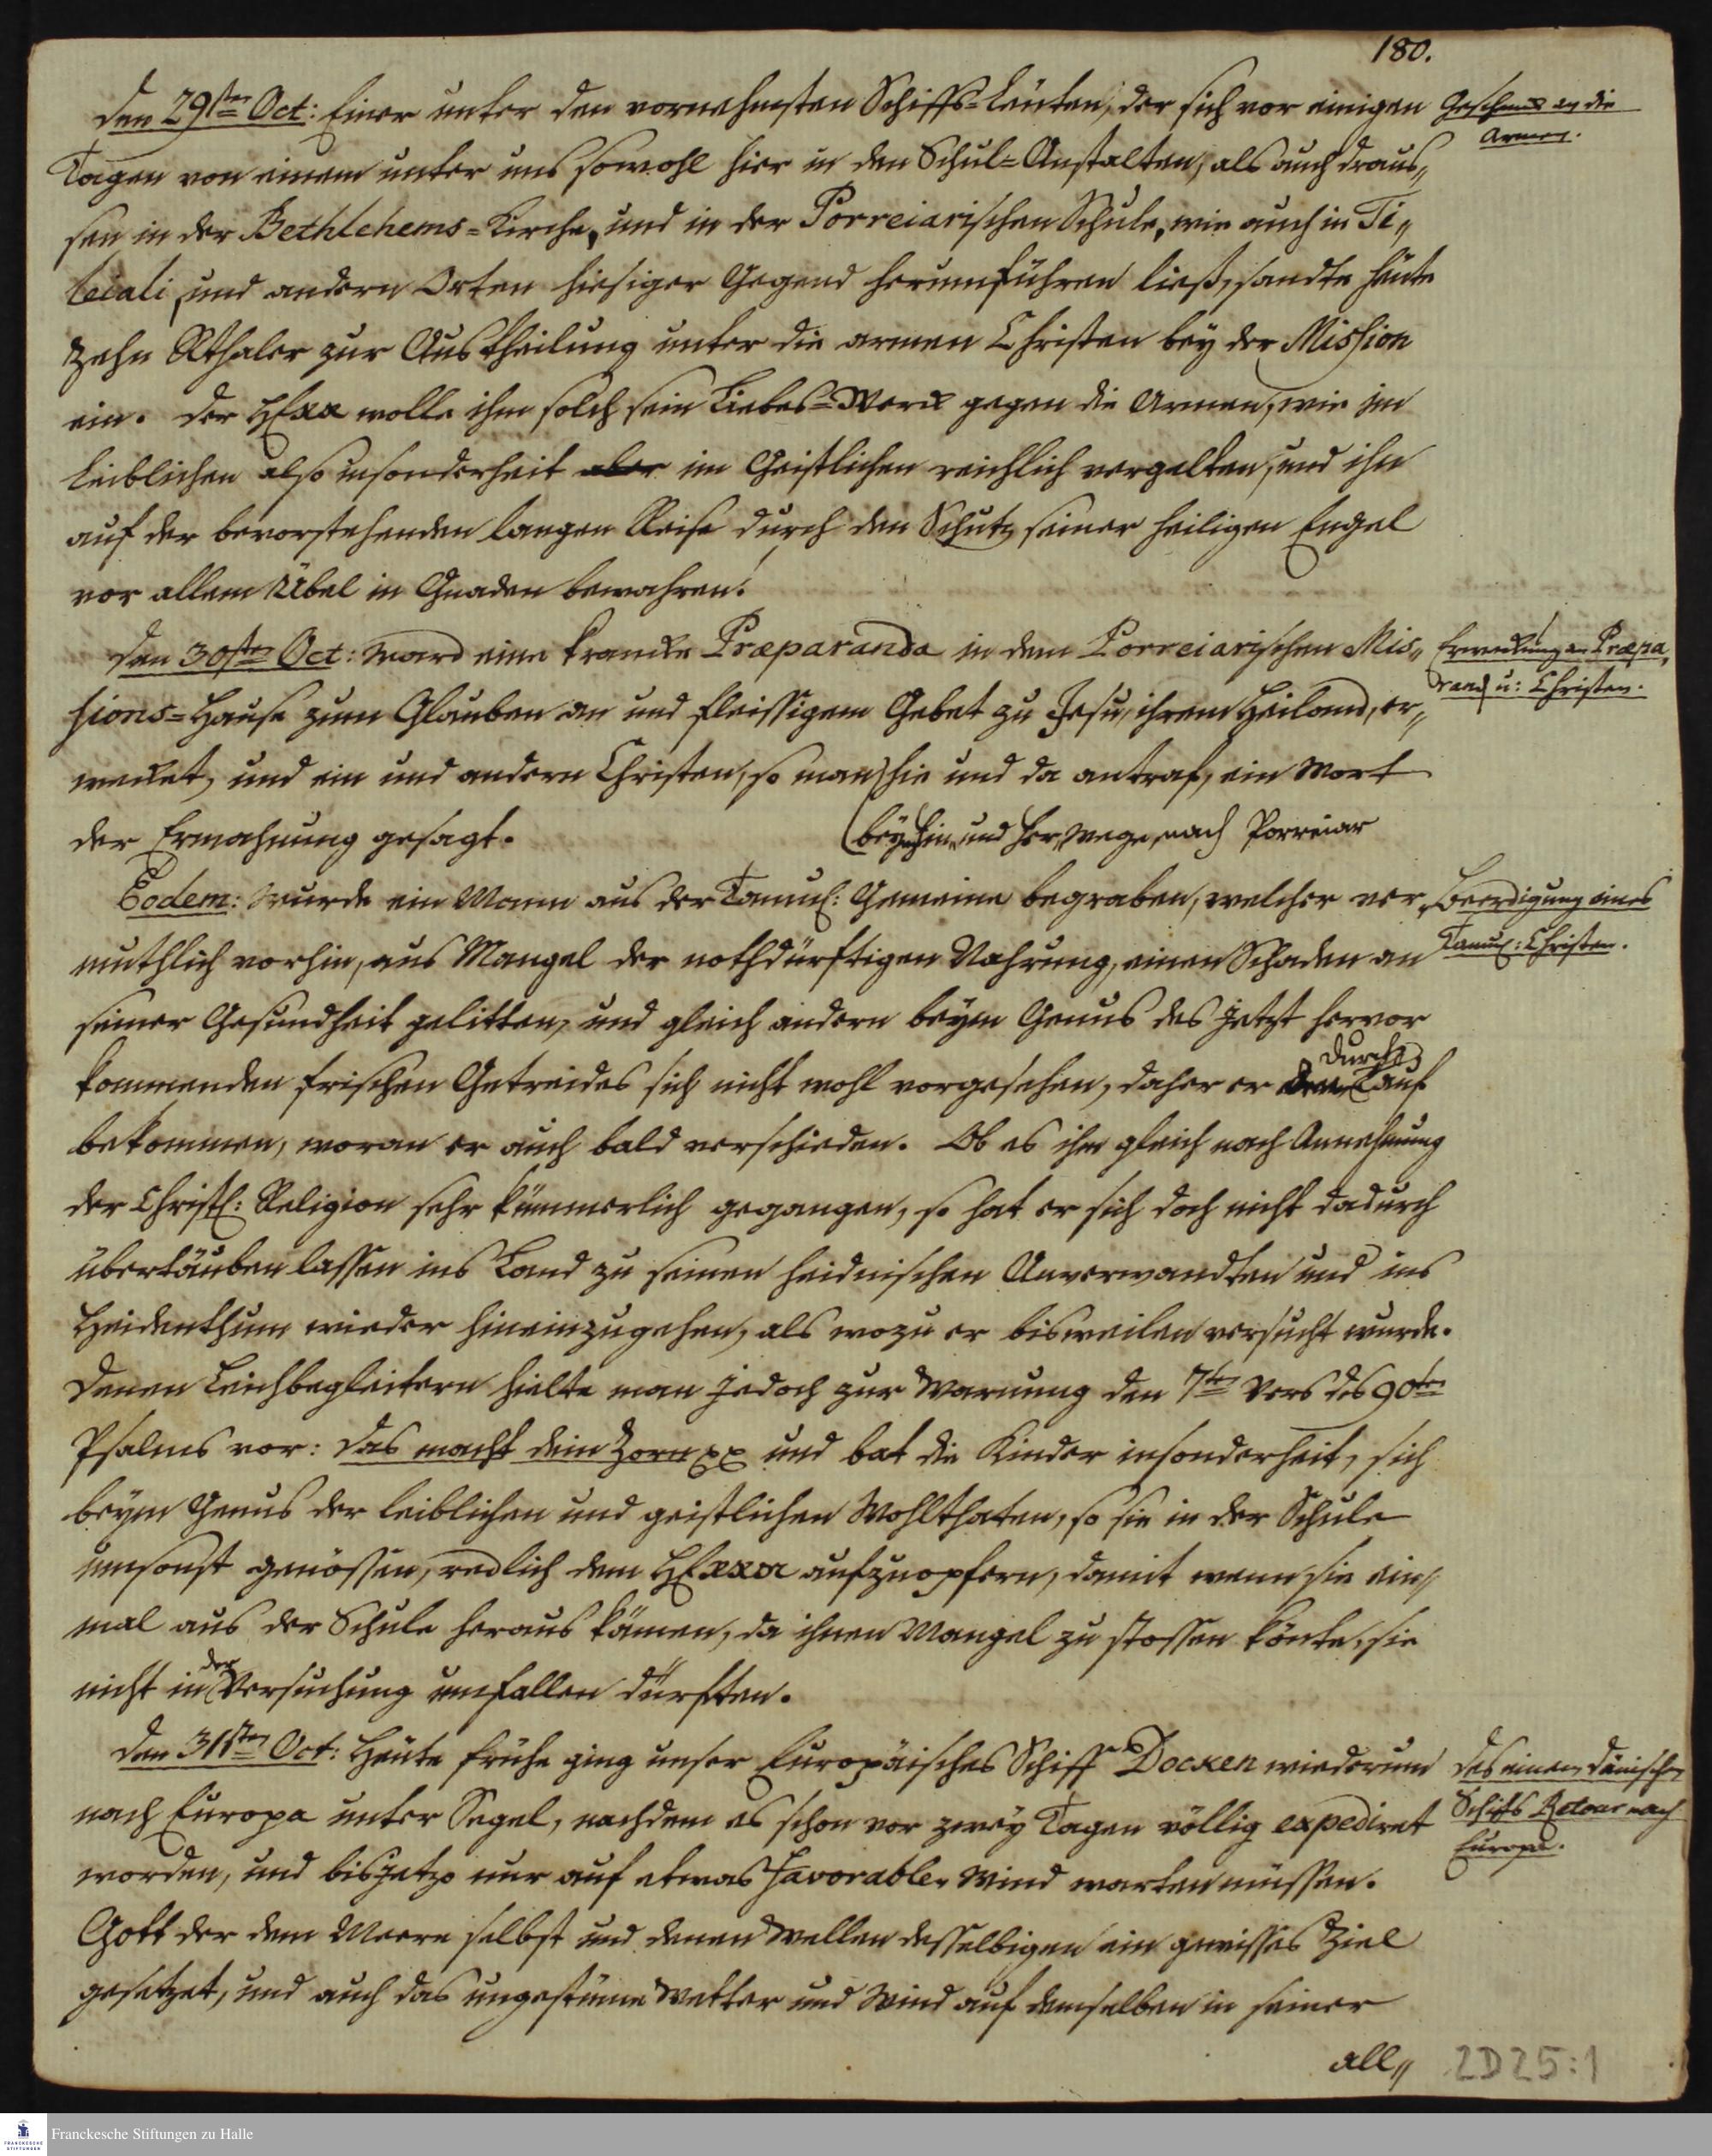 180.
Den 29sten Oct: Einer unter den vornehmsten Schiffs=Leuten, der sich vor einigen
Geschenck an die
Armen.
Tagen von einem unter uns sowohl hier in den Schul=Anstalten, als auch draus„
sen in der Bethlehems=Kirche, und in der Porreiarischen Schule, wie auch in Ti„
leiali, und andern Orten hiesiger Gegend herumführen ließ, sandte heute
zehn Rthaler zur Austheilung unter die armen Christen bey der Mission
ein. Der HErr wolle ihm solch sein Liebes=Werck gegen die Armen, wie im
Leiblichen also insonderheit aber im Geistlichen reichlich vergelten, und ihn
auf der bevorstehenden langen Reise durch den Schutz seiner heiligen Engel
vor allem Übel in Gnaden bewahren!
Den 30sten Oct: ward eine krancke Præparanda in dem Porreiarischen Mis„
Erweckung an Præpa„
rand u: Christen.
sions=Hause zum Glauben an und fleissigem Gebet zu Jesu, ihrem Heiland, er„
wecket, und ein und andern Christen, so man hie und da antraf, ein Wort
der Ermahnung gesagt.
(beym hin„ und her„wege nach Porreiar
Eodem: wurde ein Mann aus der Tamul: Gemeine begraben, welcher ver„
Beerdigung eines
Tamul: Christen.
muthlich vorhin, aus Mangel der nothdürftigen Nahrung, einen Schaden an
seiner Gesundheit gelitten, und gleich andern beym Genus des jetzt hervor
kommenden frischen Getreides sich nicht wohl vorgesehen, daher er den Durch
lauf
bekommen, woran er auch bald verschieden. Ob es ihm gleich nach Annehmung
der Christl: Religion sehr kümmerlich gegangen, so hat er sich doch nicht dadurch
übertäuben lassen ins Land zu seinen heidnischen Anverwandten und ins
Heidenthum wieder hineinzugehen, als wozu er bisweilen versucht wurde.
Denen Leichbegleitern hielte man jedoch zur Warnung den 7ten Vers des 90ten
Psalms vor: Das macht dein Zorn xx und bat die Kinder insonderheit, sich
beym Genus der leiblichen und geistlichen Wohlthaten, so sie in der Schule
umsonst genössen, redlich dem HErrn aufzuopfern, damit wenn sie ein„
mal aus der Schule heraus kämen, da ihnen Mangel zu stossen könte, sie
nicht in der Versuchung umfallen dürften.
Den 31sten Oct: Heute frühe ging unser Europäisches Schiff Docken wiederum
Des einen Dänischen
Schiffs Retour nach
Europa.
nach Europa unter Segel, nachdem es schon vor zwey Tagen völlig expediret
worden, und bis jetzo nur auf etwas favorablen Wind warten müssen.
Gott der dem Meere selbst und denen Wellen desselbigen ein gewisses Ziel
gesetzet, und auch das ungestüme Wetter und Wind auf demselben in seiner
all„
2D25:1
Franckesche Stiftungen zu Halle